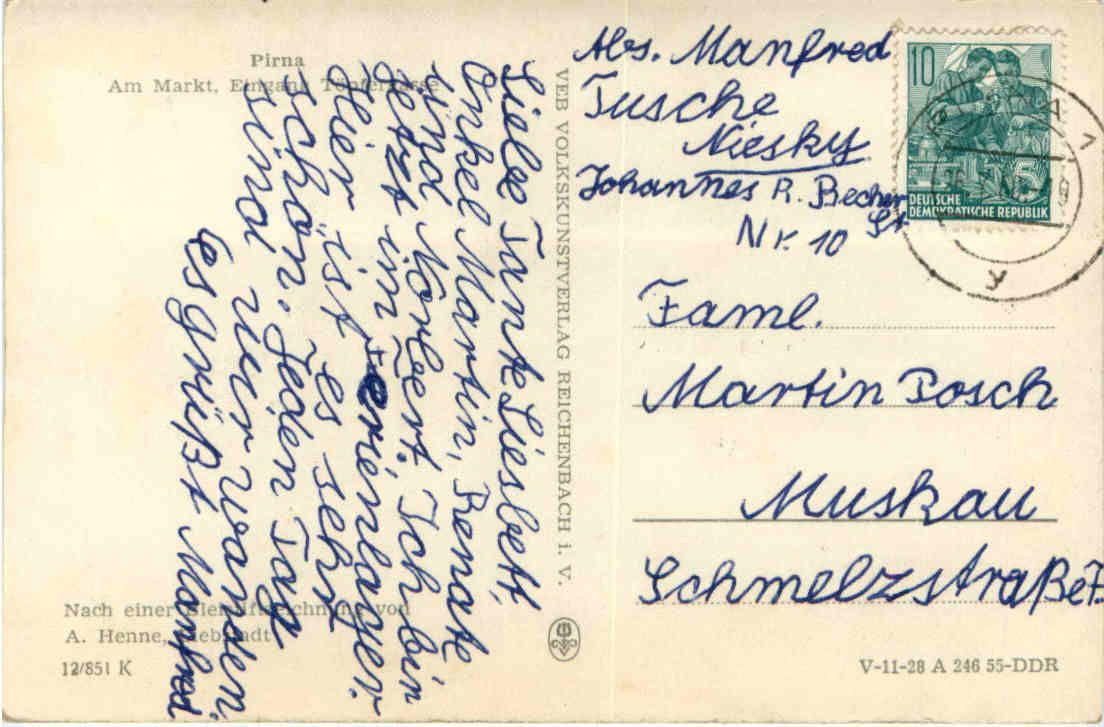 Pirna
Am Markt, Eingang Töpfergasse
Liebe Tante Liesbett,
Onkel Martin, Renate
und Norbert. Ich bin
jetzt im Ferienlager.
Hier ist es sehr
schön. Jeden Tag
sind wir wandern.
Es grüßt Manfred
Nach einer Bleistiftzeichnung von
A. Henne, Liebstadt
12/851 K
VEB VOLKSKUNSTVERLAG REICHENBACH i. V.
Abs. Manfred
Tusche
Niesky
Johannes R. Becher
St
Nr. 10
10
5
DEUTSCHE
DEMOKRATISCHE REPUBLIK
Faml.
Martin Posch
Muskau
Schmelzstraße 7
V-11-28 A 246 55-DDR